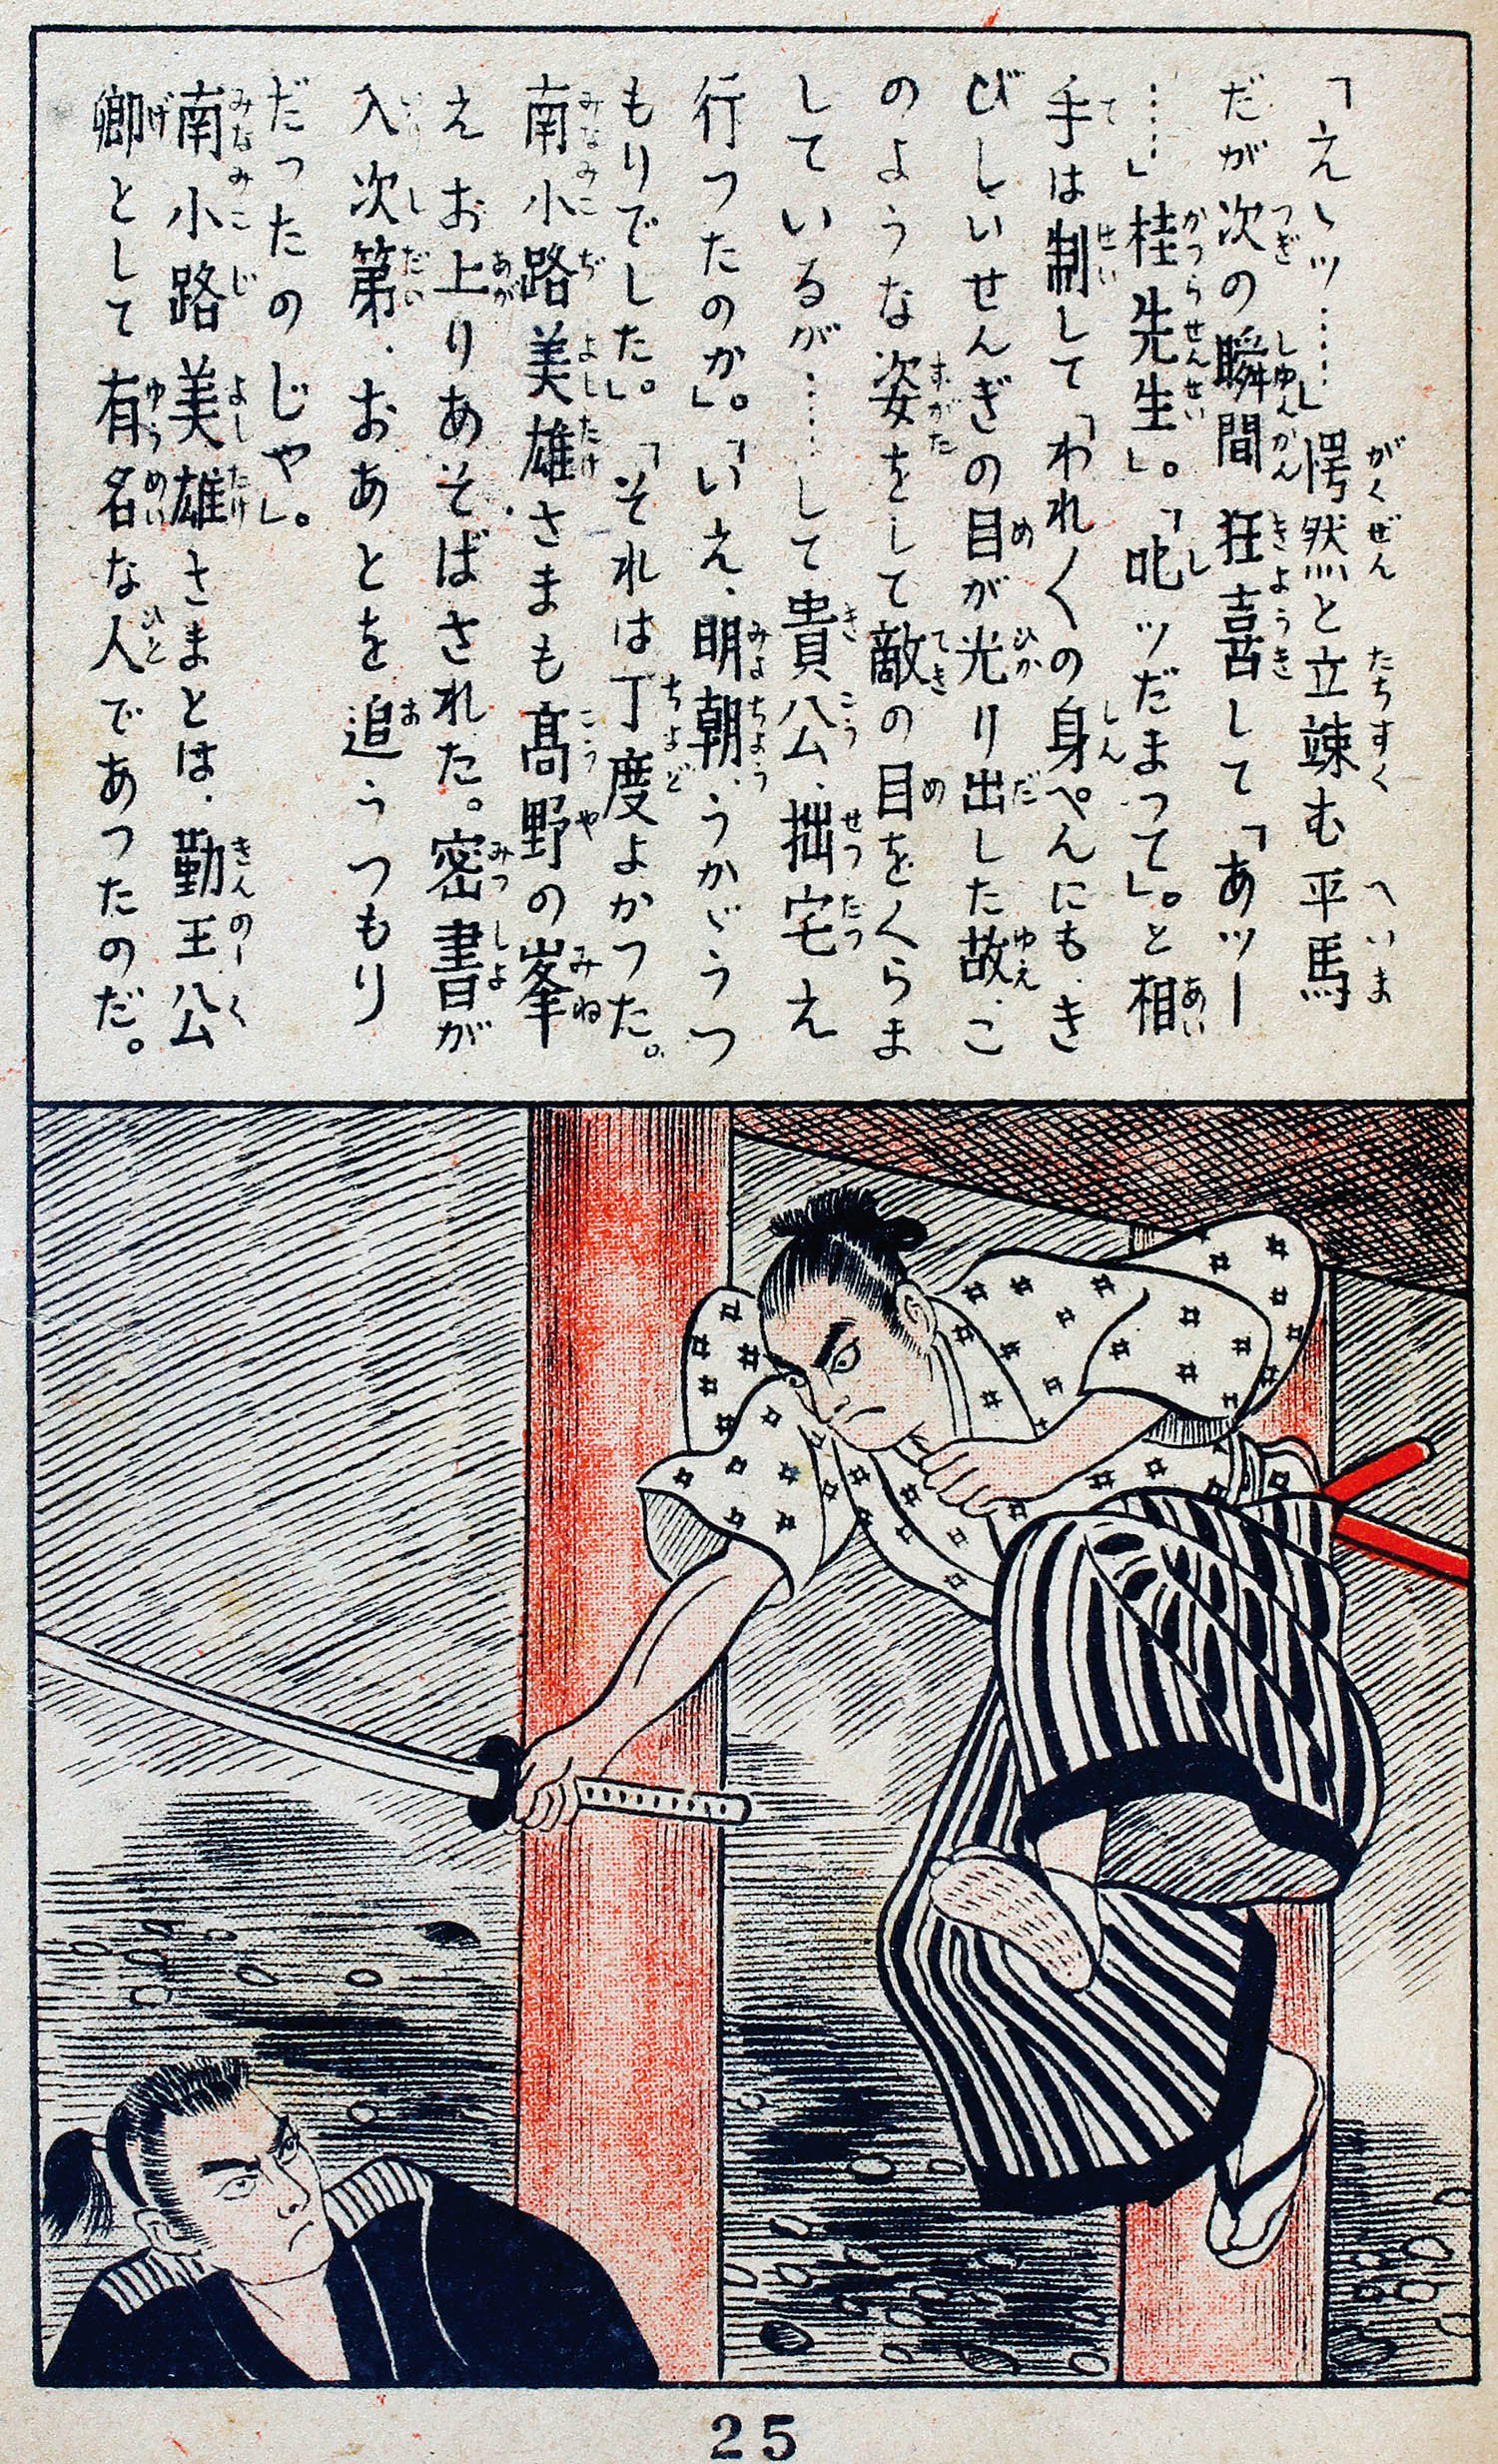 「えゝッ……」愕然と立竦む平馬
だが次の瞬間狂喜して「あッー
……」桂先生」。「叱ッだまって」。と相
手は制して「われ〱の身ぺんにも、き
びしいせんぎの目が光り出した故、こ
のような姿をして敵の目をくらま
しているが……して貴公、拙宅え
行つたのか」。「いえ、明朝、うかゞうつ
もりでした」。「それは丁度よかつた。
南小路美雄さまも高野の峯
え お上りあそばされた。密書が
入次第、おあとを追うつもり
だったのじや」。
南小路美雄さまとは、勤王公
卿として有名な人であつたのだ。
25